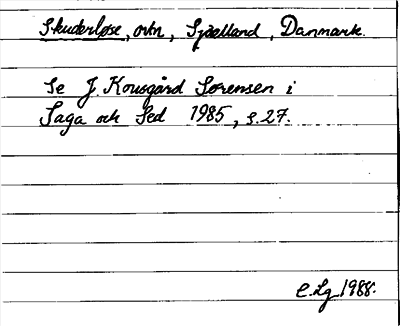 Skuderløse, ortn, Sjælland, Danmark.
Se J. Kousgård Sørensen i
Saga och Sed 1985, s. 27.
E. Lg 1988.